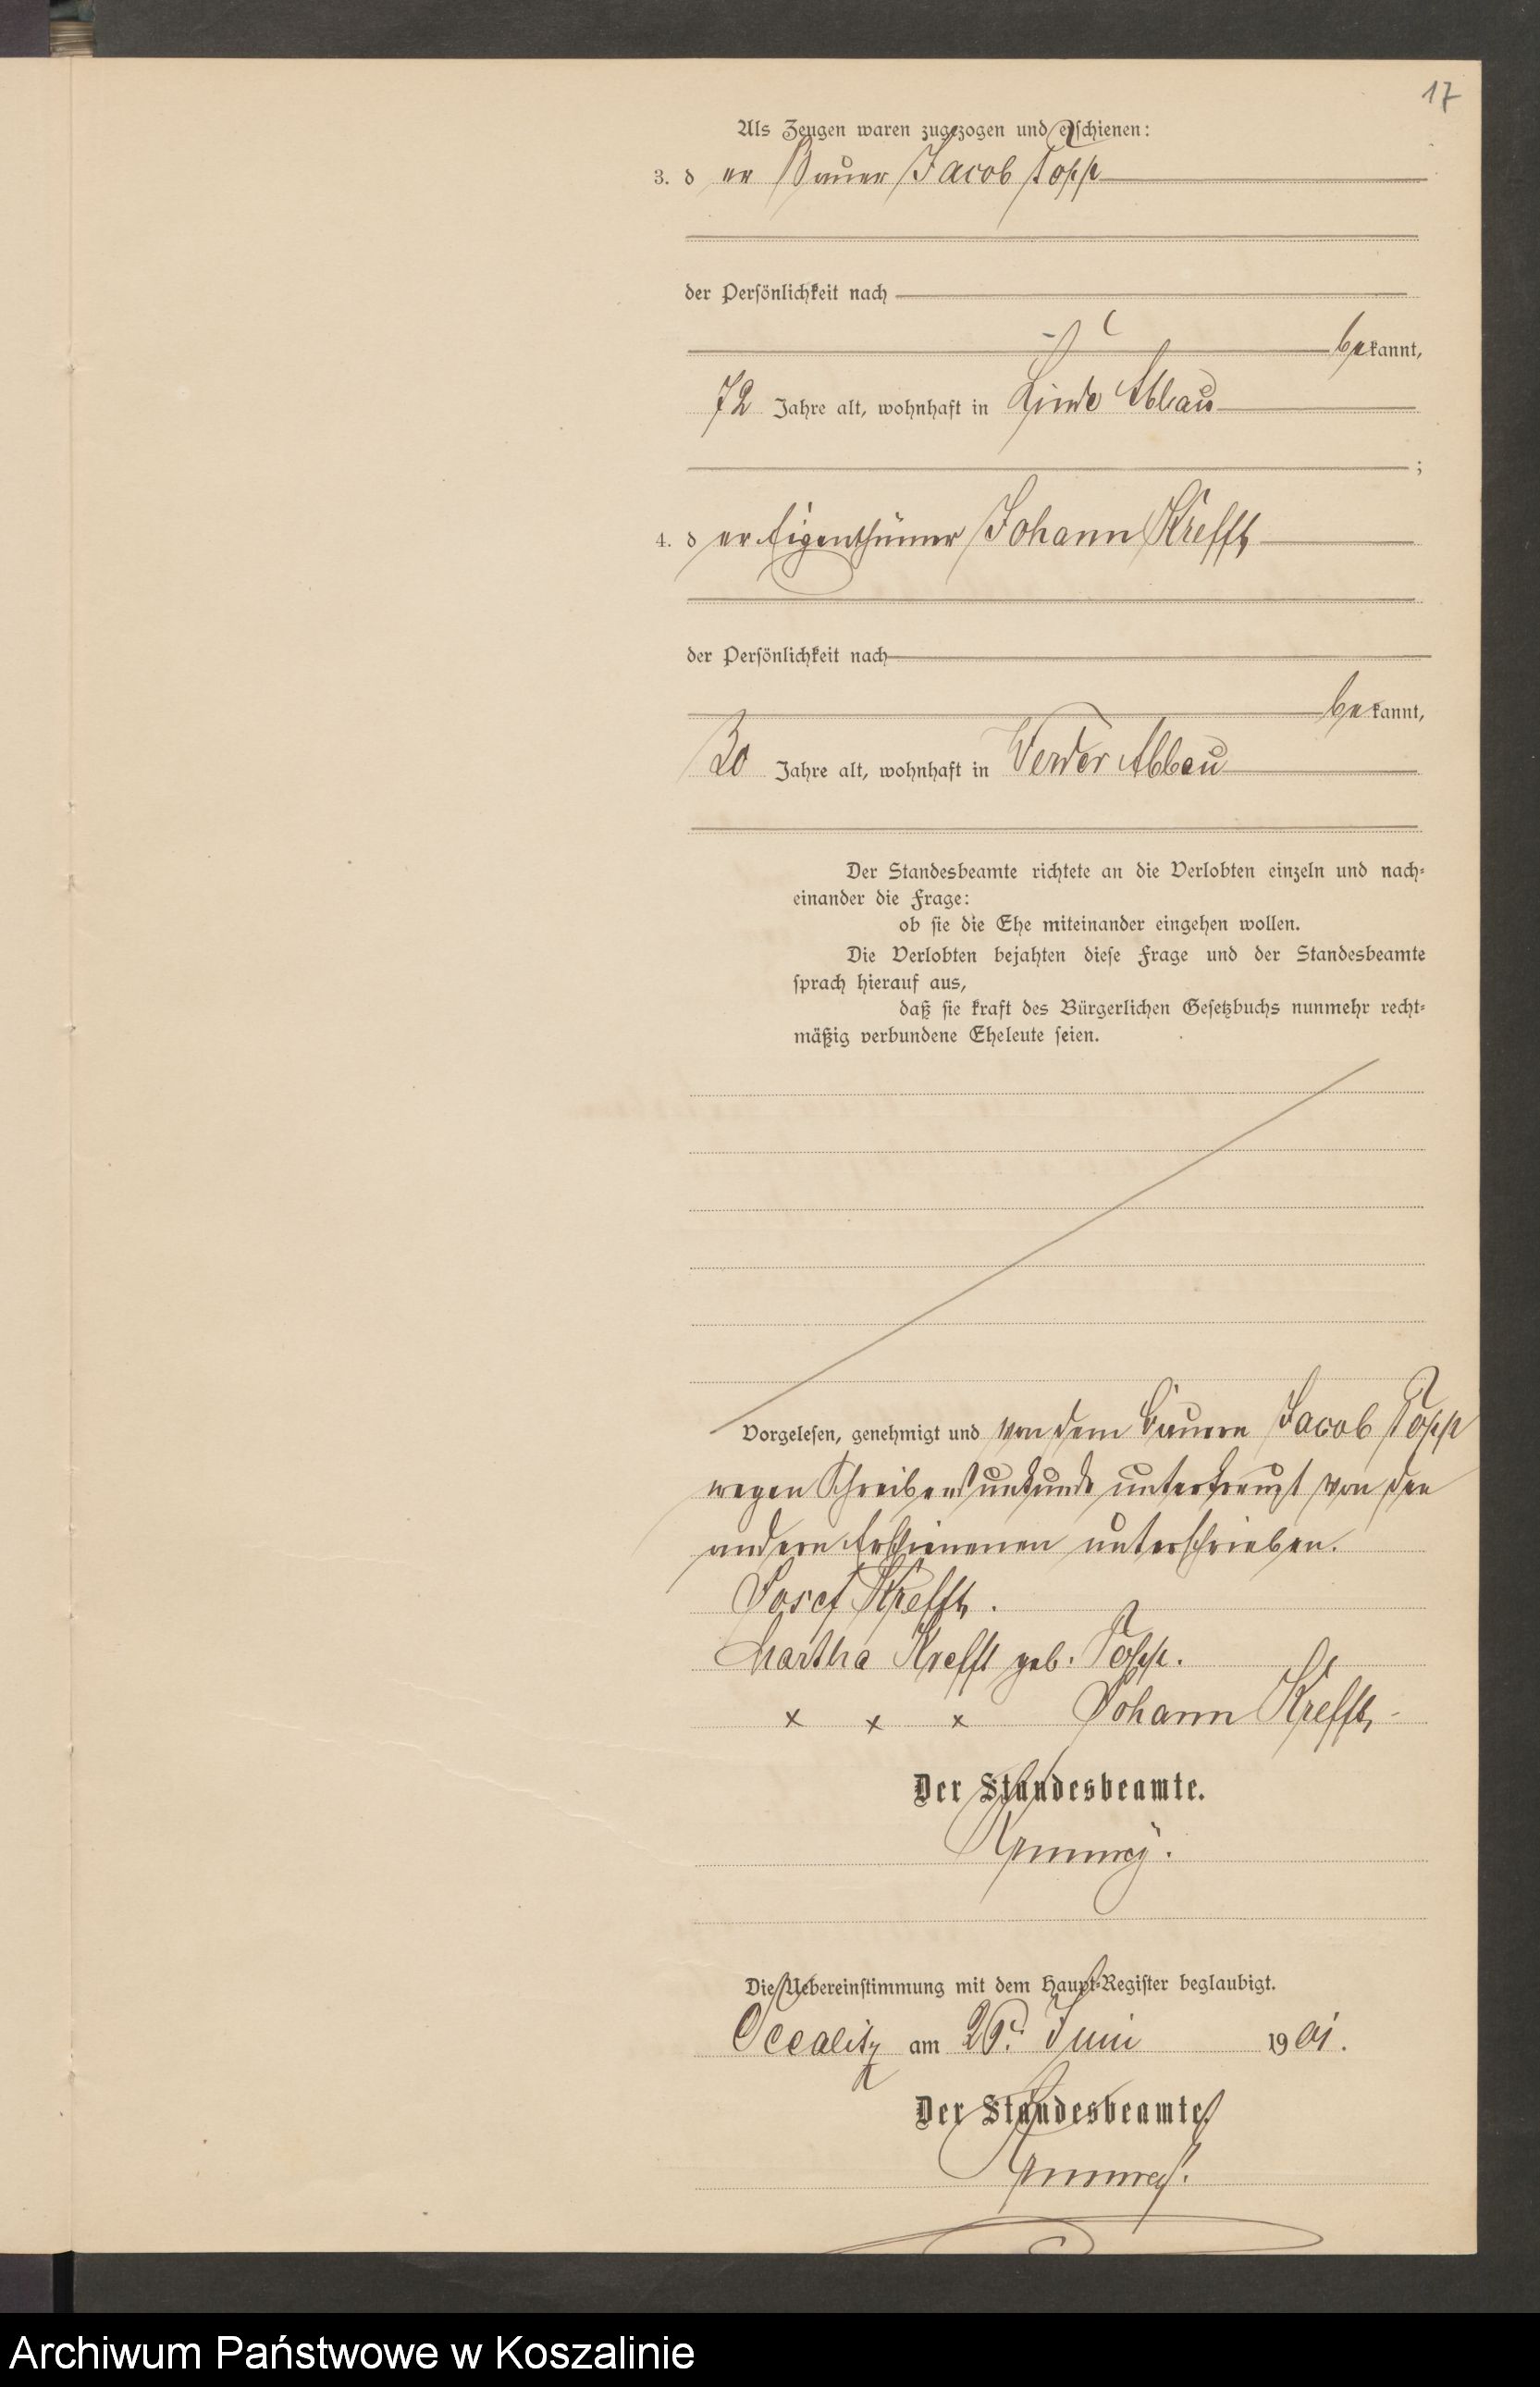 17
Als Zeugen waren zugezogen und erschienen:
3. d er Bauer Jacob Topp
der Persönlichkeit nach
bekannt,
72 Jahre alt, wohnhaft in Linde Abbau
;
4. d er Eigenthümer Johann Krefft
der Persönlichkeit nach
bekannt,
30 Jahre alt, wohnhaft in Werder Abbau
Der Standesbeamte richtete an die Verlobten einzeln und nach-
einander die Frage:
ob sie die Ehe miteinander eingehen wollen.
Die Verlobten bejahten diese Frage und der Standesbeamte
sprach hierauf aus,
daß sie kraft des Bürgerlichen Gesetzbuchs nunmehr recht-
mäßig verbundene Eheleute seien.
Vorgelesen, genehmigt und von dem Bauern Jacob Topp
wegen Schreibensunkunde unterkreuzt von den
andern Erschienenen unterschrieben.
Josef Krefft.
Martha Krefft geb. Topp.
x x x Johann Krefft
Der Standesbeamte.
Die Uebereinstimmung mit dem Haupt-Register beglaubigt.
Occalitz am Juni 1901.
Der Standesbeamte.
Archiwum Państwowe w Koszalinie